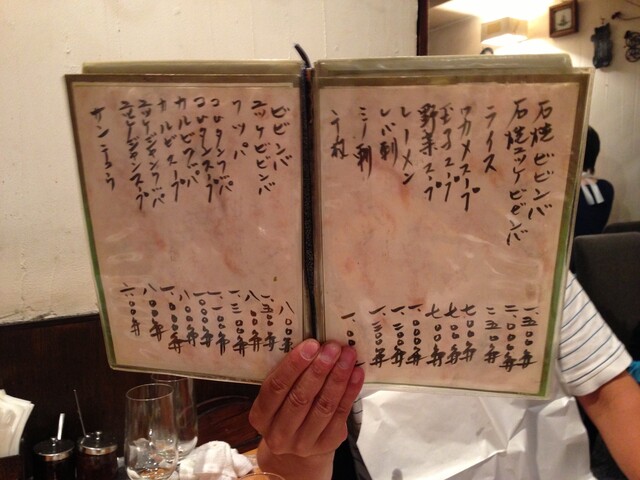 石焼ビビンバ 一、五〇〇円
石焼ユッケビビンバ 二、〇〇〇円
ライス 二五〇円
ワカメスープ 七〇〇円
玉子スープ 七〇〇円
野菜スープ 七〇〇円
レーメン
レバ刺 一、二〇〇円
ミノ刺 一、三〇〇円
千枚
ビビンバ 八〇〇円
ユッケビビンバ 一、五〇〇円
クッパ 八〇〇円
コムタンクッパ 一、三〇〇円
コムタンスープ
カルビクッパ
カルビスープ 八〇〇円
ユッケジャンクッパ 一、〇〇〇円
ユッケジャンスープ 八〇〇円
サンチュ 六〇〇円